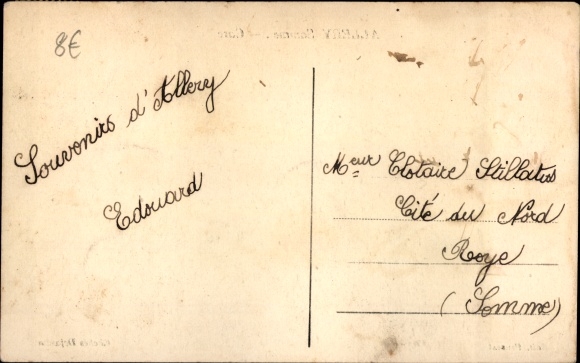 8€
Souvenirs d'Allery
Edouard
Meur Clotaire Stillatus
Cité du Nord
Roye
(Somme)